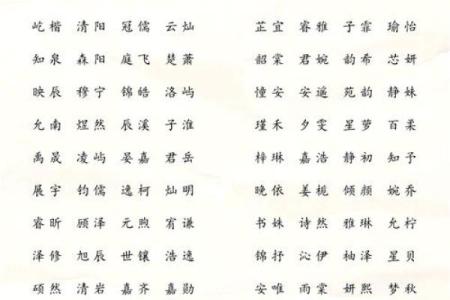 屹楷 清阳 冠儒 云灿 芷宜 睿雅 子霏 瑜怡
知泉 森阳 庭飞 楚萧 韶棠 君婉 韵希 芯妍
映辰 穆宁 锦皓 洛屿 憧安 安遥 苑韵 静妹
允南 煜然 辰溪 子淮 瑾禾 夕雯 星萝 百柔
禹晟 凌屿 晏嘉 君岳 梓琳 嘉浩 静初 知予
展宇 钧儒 逸柯 灿明 晚依 姜栀 倾颜 婉乔
睿昕 顾泽 元煦 宥谦 书妹 诗然 雅琳 允柠
泽修 旭辰 世镶 浩逸 锦抒 沁伊 柚泽 星贝
硕然 清岩 嘉齐 嘉勋 安唯 雨棠 妍熙 梦秋